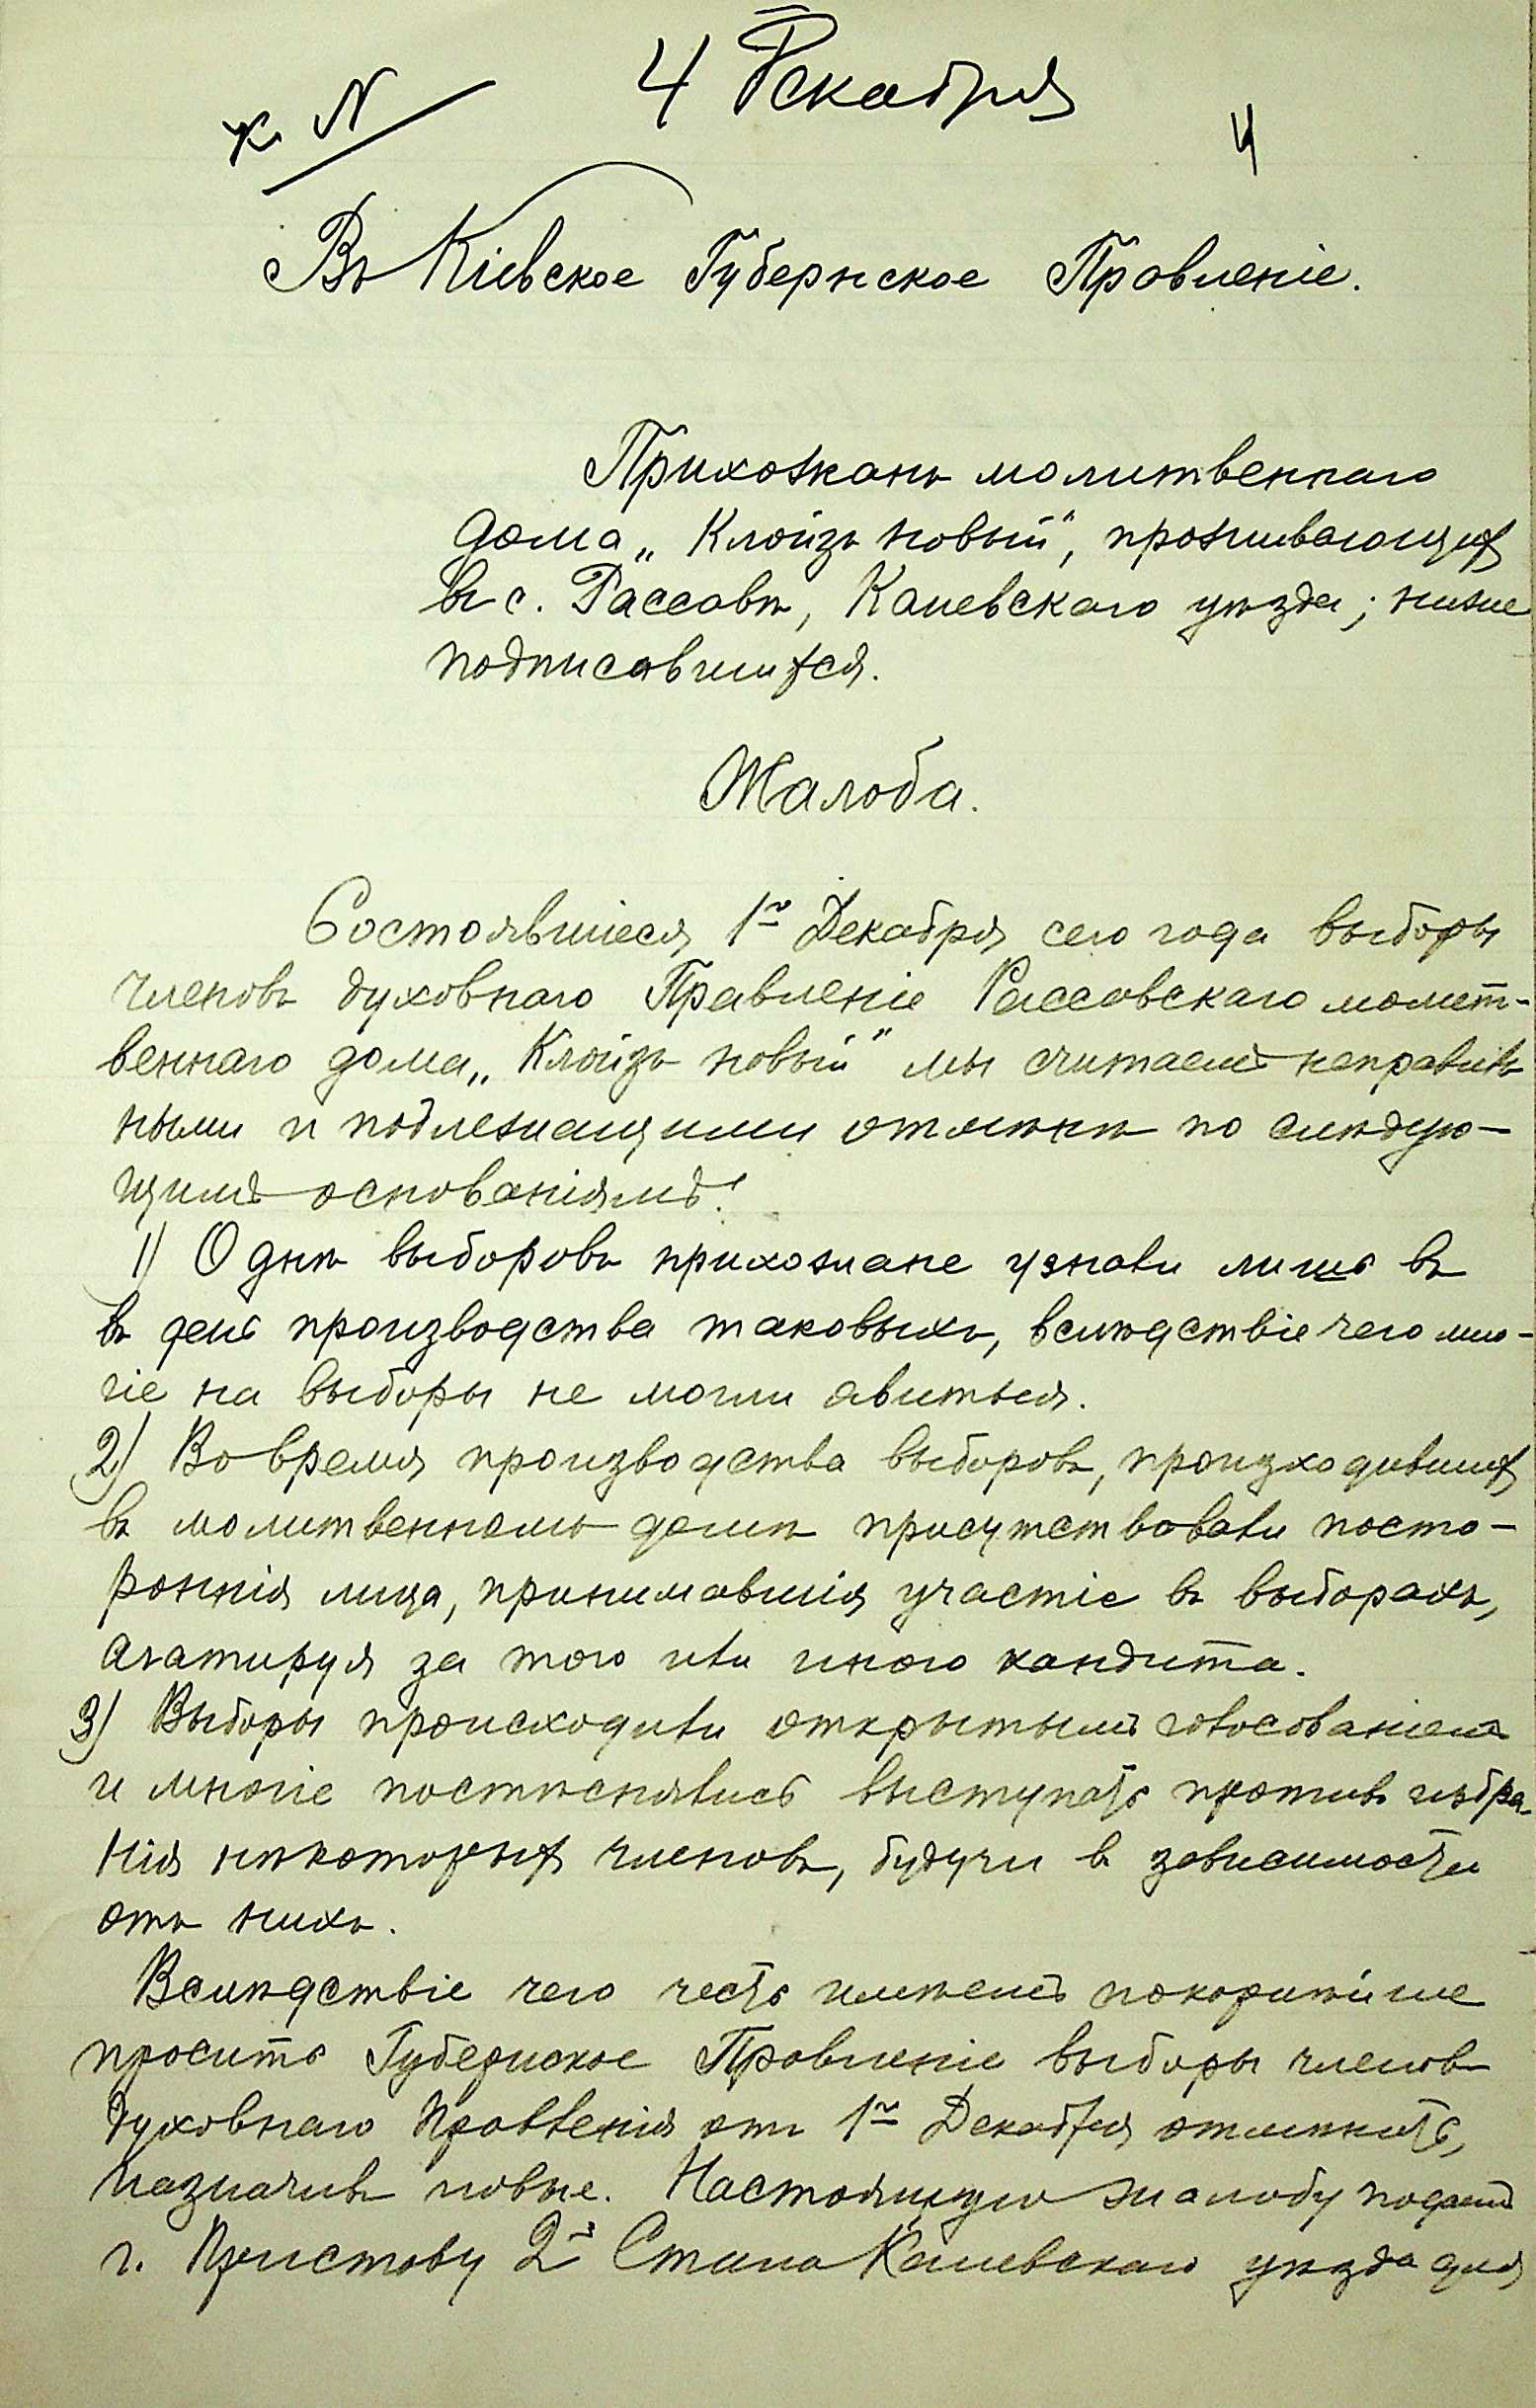 4 Декабря
к N
4
Въ Кіевское Губернское Правленіе.
Прихожанъ молитвеннаго
дома „Клойзъ новый“, проживающих
въ с. Рассавѣ, Каневскаго уѣзда; ниже
подписавшихся.
Жалоба.
Состоявшіеся 1го Декабря сего года выборы
членовъ духовнаго Правленіе Рассавскаго молит-
веннаго дома „Клойзъ новый“ мы считаемъ неправиль
ными и подлежащими отмѣнѣ по слѣдую-
щимъ основаніямъ:
1) О днѣ выборовъ прихожане узнали лишь въ
въ день производства таковыхъ, вслѣдствіе чего мно-
гіе на выборы не могли явиться.
2) Во время производства выборовъ, произходивших
въ молитвенномъ домѣ присутствовали посто-
роннія лица, принимавшія участіе въ выборахъ,
агатируя за того или иного кандита.
3) Выборы происходили открытымъ голосованіемъ
и многіе постѣснялись выступать противъ избра-
нія нѣкоторых членовъ, будучи въ зависимости
отъ нихъ.
Вслѣдствіе чего честь имѣемъ покорнѣйше
просить Губернское Правленіе выборы членовъ
духовнаго Правленія отъ 1го Декабря отмѣнить,
назначивъ новые. Настоящую жалобу подаемъ
г. Приставу 2й Стана Каневскаго уѣзда для